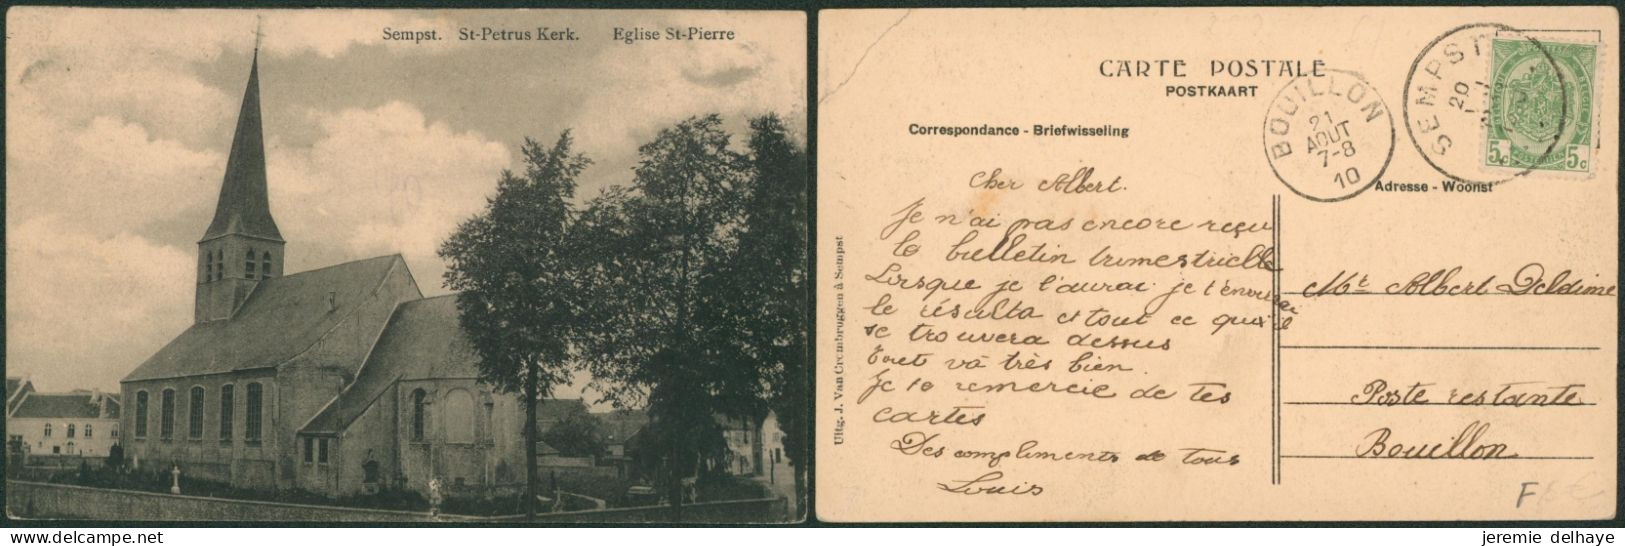 Sempst. St-Petrus Kerk. Eglise St-Pierre
CARTE POSTALE
POSTKAART
Correspondance - Briefwisseling
Adresse - Woonst
BOUILLON
21
AOUT
7-8
10
SEMPST
20
5c 5c
Cher Albert.
Je n'ai pas encore reçu
le bulletin trimestrielle
Lorsque je l'aurai je t'enverrai
le résulta et tout ce qu'il
se trouvera dessus
Tout va très bien.
Je te remercie de tes
cartes
Des compliments de tous
Louis
Mr Albert Deldime
Poste restante
Bouillon
Uitg. J. Van Crombruggen à Sempst
F
jeremie delhaye